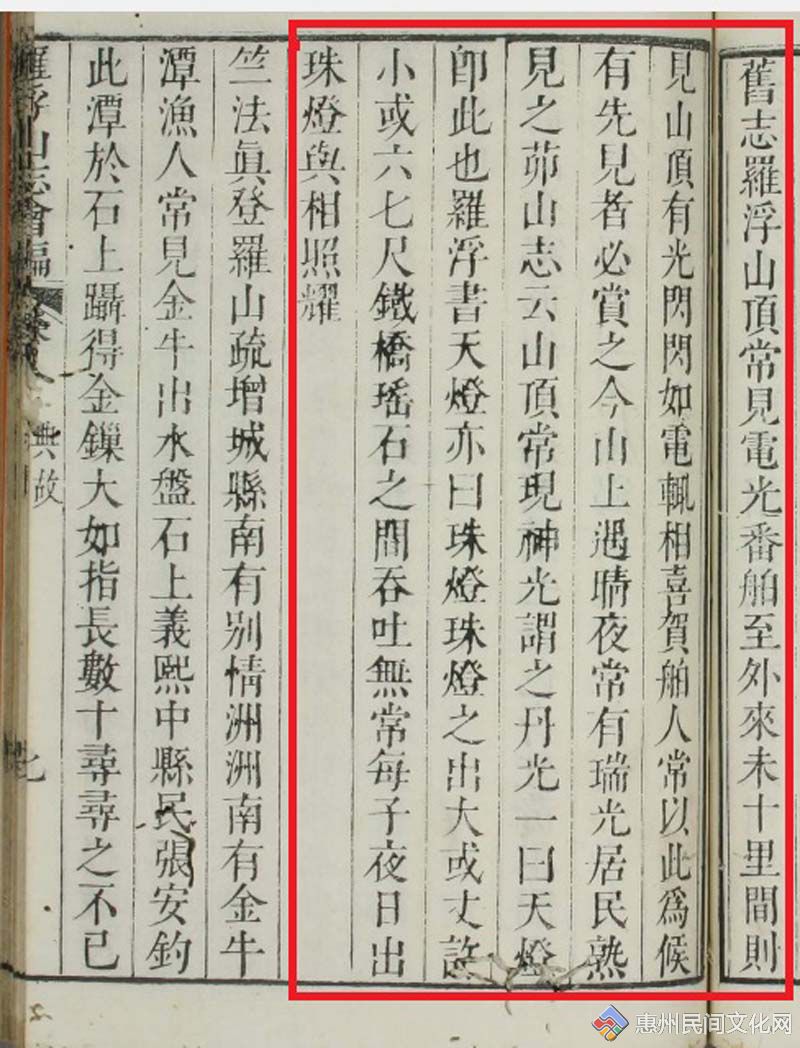 舊志羅浮山頂常見電光番舶至外來未十里間則
見山頂有光閃閃如電輒相喜賀舶人常以此爲候
有先見者必賞之今山上遇晴夜常有瑞光居民熟
見之茆山志云山頂常現神光謂之丹光一曰天燈
卽此也羅浮書天燈亦曰珠燈珠燈之出大或丈許
小或六七尺鐵橋瑤石之間吞吐無常每子夜日出
珠燈與相照耀
竺法眞登羅山疏增城縣南有別情洲洲南有金牛
潭漁人常見金牛出水盤石上義熙中縣民張安釣
此潭於石上躡得金鏁大如指長數十尋尋之不已
羅浮山志會編 典故 七
惠州民间文化网